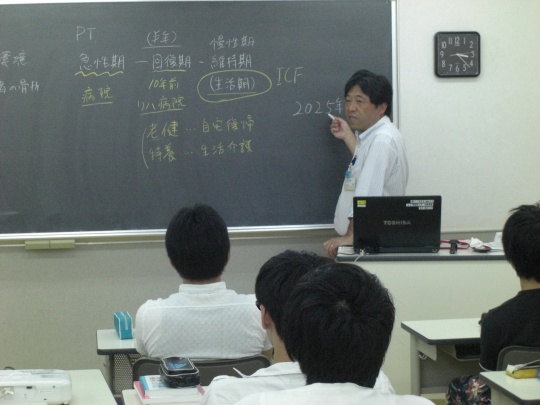 PT
(亜急)
慢性期
急性期 ― 回復期 ― 維持期
病院
10年前
リハ病院
(生活期)
ICF
2025年
老健 … 自宅復帰
特養 … 生活介護
TOSHIBA